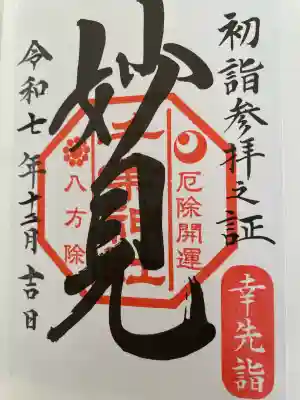 初詣参拝之証
幸先詣
妙見
厄除開運
八方除
令和七年十二月吉日